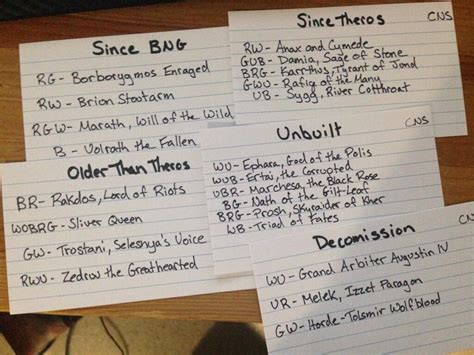 Since BNG
RG - Borborygmos Enraged
RW - Brion Stoutarm
RGW - Marath, Will of the Wild
B - Volrath the Fallen
Since Theros
CNS
RW - Anax and Cymede
GUB - Damia, Sage of Stone
BRG - Karrthus, Tyrant of Jond
GWU - Rafiq of the Many
UB - Sygg, River Cutthroat
Older Than Theros
BR - Rakdos, Lord of Riots
WUBRG - Sliver Queen
GW - Trostani, Selesnya's Voice
RWU - Zedruu the Greathearted
Unbuilt
CNS
WU - Ephara, God of the Polis
WUB - Ertai, the Corrupted
UBR - Marchesa, the Black Rose
BG - Nath of the Gilt-Leaf
BRG - Prosh, Skyraider of Kher
WB - Triad of Fates
Decomission
CNS
WU - Grand Arbiter Augustin IV
UR - Melek, Izzet Paragon
GW - Horde - Tolsimir Wolfblood